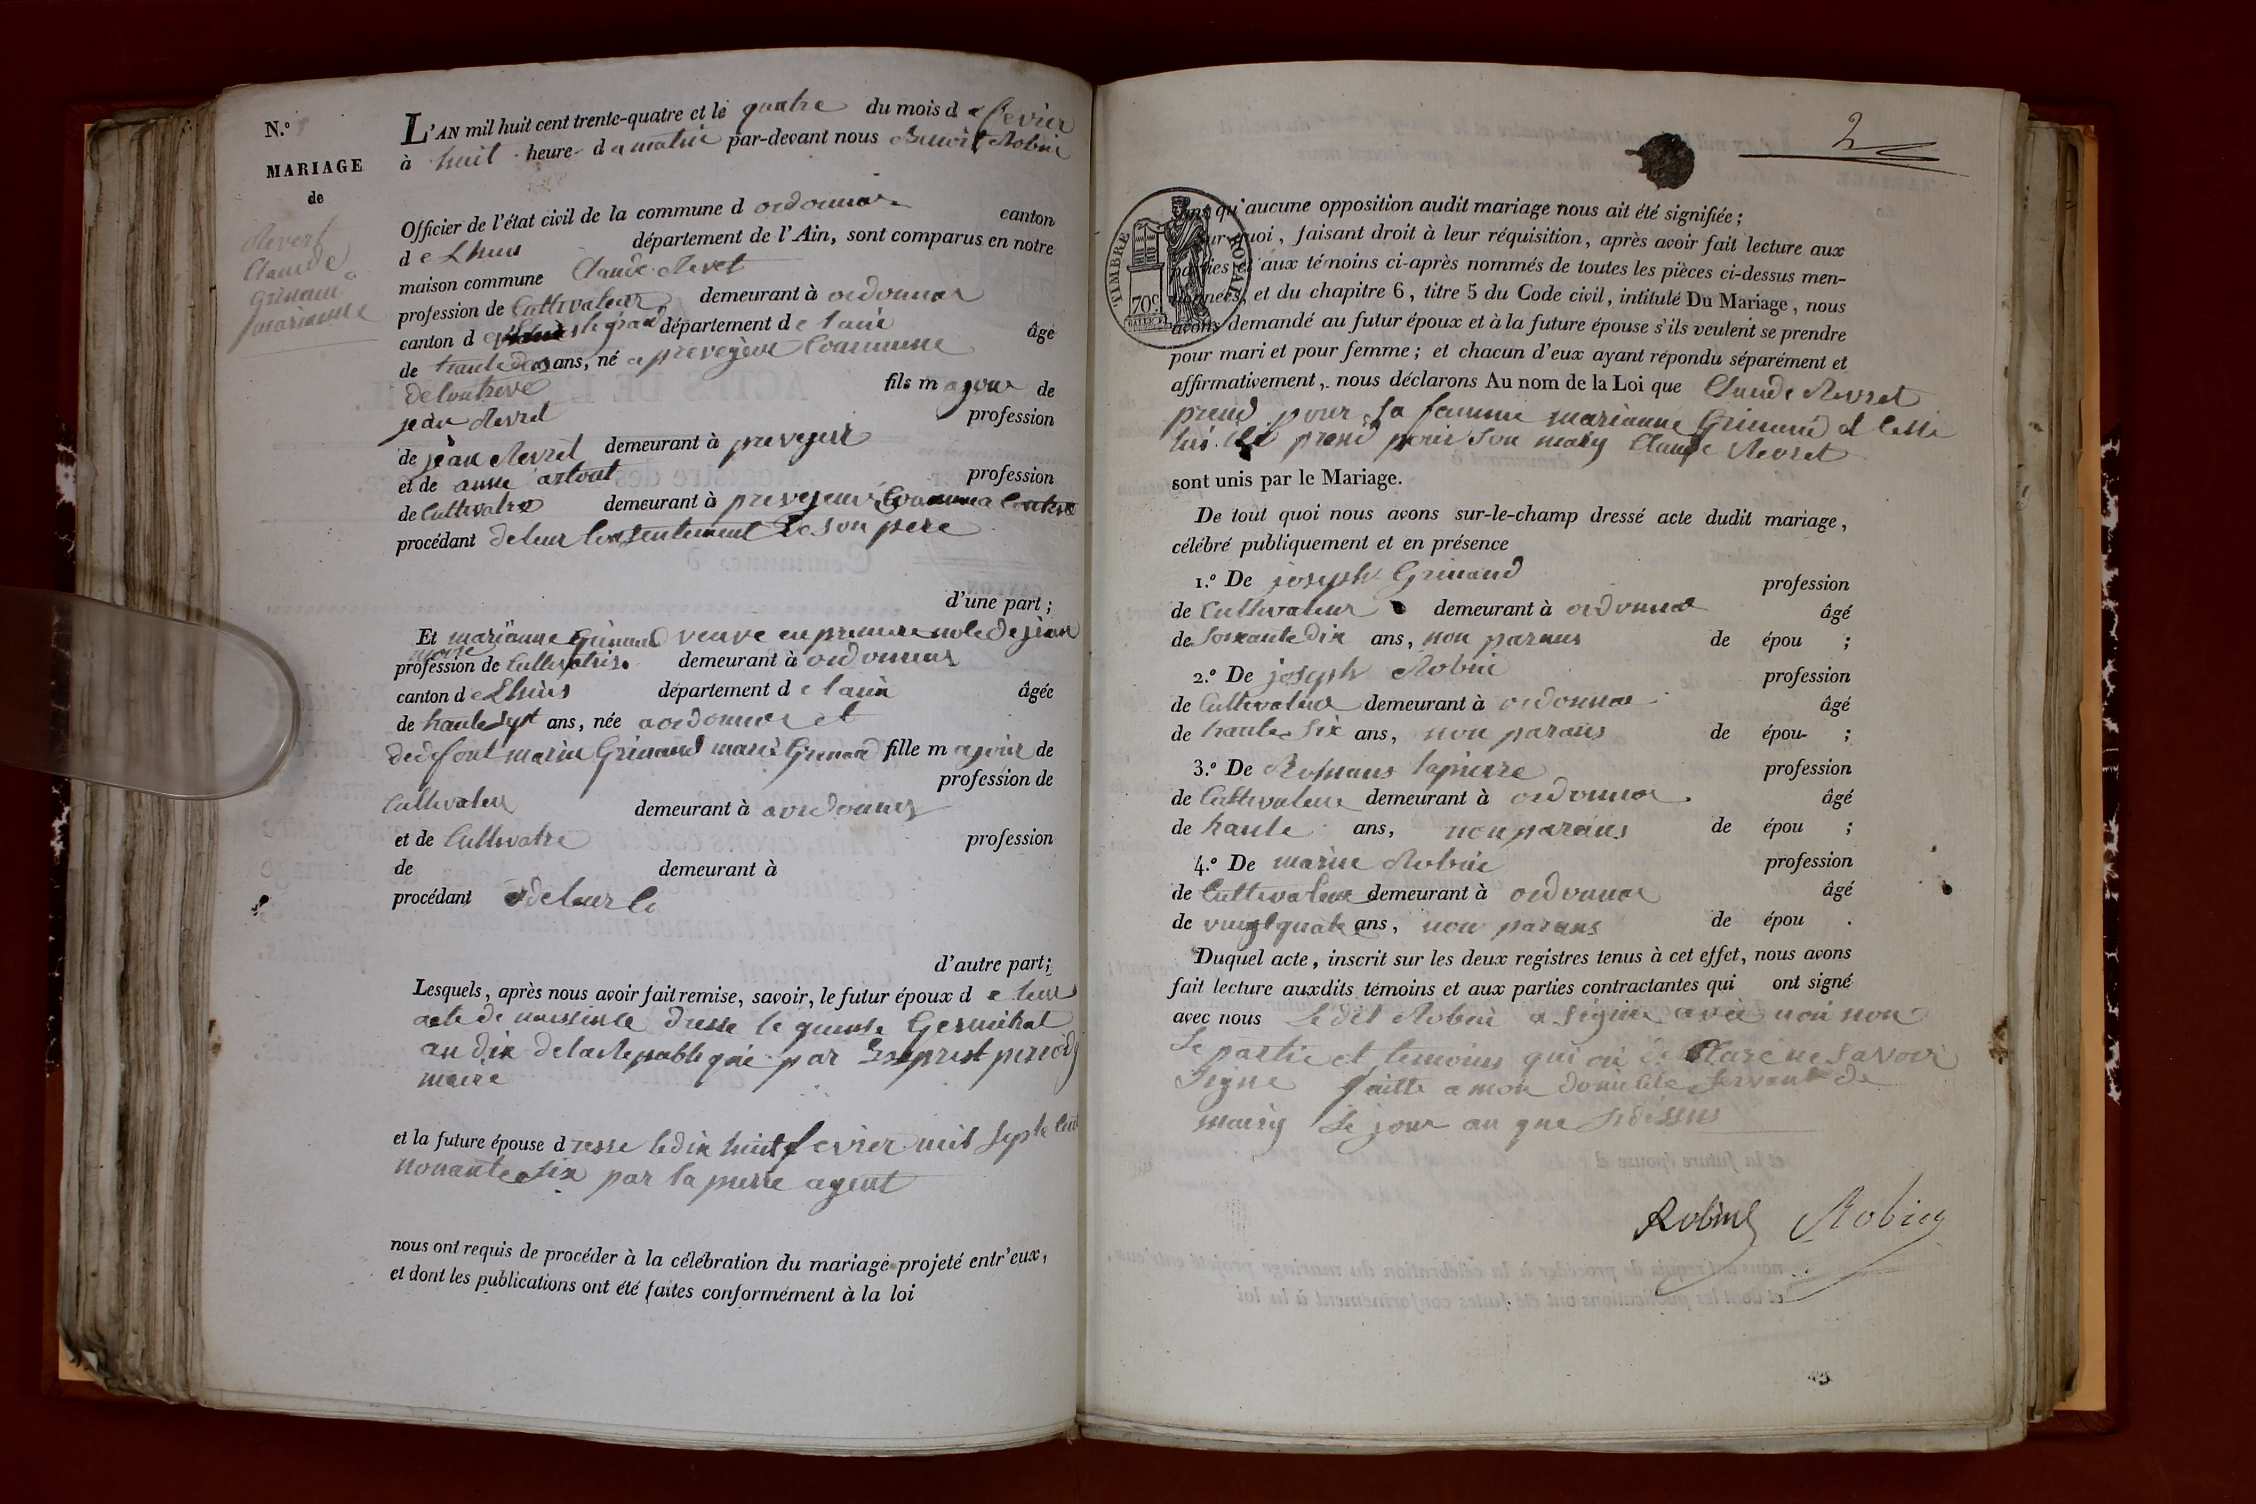 N.º
MARIAGE
de
Revert
Claude
a
Grinand
marianne
L'AN mil huit cent trente-quatre et le quatre du mois de fevrier
à huit heure du matin par-devant nous Benoit Robin
Officier de l'état civil de la commune d ordonnas canton
de Lhuis département de l'Ain, sont comparus en notre
maison commune Claude Revret
profession de Cultivateur demeurant à ordonnas
canton de département de l'ain âgé
de trente deux ans, né a preveyzieu Commune
de Contrevo fils majour de
jean Revret profession
de jean Revret demeurant à preveyzieu
et de anne artout profession
de Cultivatre demeurant à preveyzieu Commune Contrevo
procédant de leur Consentement de son pere
d'une part;
Et marianne Grinand veuve en premiere nole de jean
moise
profession de Cultivatrise demeurant à ordonnas
canton de Lhuis département de l'ain âgée
de trante sept ans, née a ordonnas et
de defont marin Grinand marie Grinand fille majour de
profession de
Cultivateur demeurant à a ordonnas
et de Cultivatre profession
de demeurant à
procédant de leur Co
d'autre part;
Lesquels, après nous avoir fait remise, savoir, le futur époux de leur
acte de naissence dresse le quinse Germinal
an dix de la Republique par
maire
et la future épouse dresse le dix huit fevrier mil sept cent
nonante six par lapierre agent
nous ont requis de procéder à la célébration du mariage projeté entr'eux,
et dont les publications ont été faites conformément à la loi
2
TIMBRE ROYAL
70 c.
sans qu'aucune opposition audit mariage nous ait été signifiée;
Sur quoi, faisant droit à leur réquisition, après avoir fait lecture aux
parties et aux témoins ci-après nommés de toutes les pièces ci-dessus men-
tionnées, et du chapitre 6, titre 5 du Code civil, intitulé Du Mariage, nous
avons demandé au futur époux et à la future épouse s'ils veulent se prendre
pour mari et pour femme; et chacun d'eux ayant répondu séparément et
affirmativement, nous déclarons Au nom de la Loi que Claude Revret
prend pour sa famme marianne Grinand et Celle
prend pour son mary Claude Revret
sont unis par le Mariage.
De tout quoi nous avons sur-le-champ dressé acte dudit mariage,
célébré publiquement et en présence
1.º De joseph Grinand profession
de Cultivateur demeurant à ordonnas âgé
de soixante dix ans, non parans de épou ;
2.º De joseph Robin profession
de Cultivateur demeurant à ordonnas âgé
de trante six ans, non parans de épou ;
3.º De Romans lapierre profession
de Cultivateur demeurant à ordonnas âgé
de trante ans, non parans de épou ;
4.º De marin Robin profession
de Cultivateur demeurant à ordonnas âgé
de vingt quatre ans, non parans de épou .
Duquel acte, inscrit sur les deux registres tenus à cet effet, nous avons
fait lecture auxdits témoins et aux parties contractantes qui ont signé
avec nous ledit Robin a signé avec nou non
le partie et temoins qui on declaré ne savoir
signe faitte a mon domicile servant de
mairy le jour an que sidessus
Robin Robin